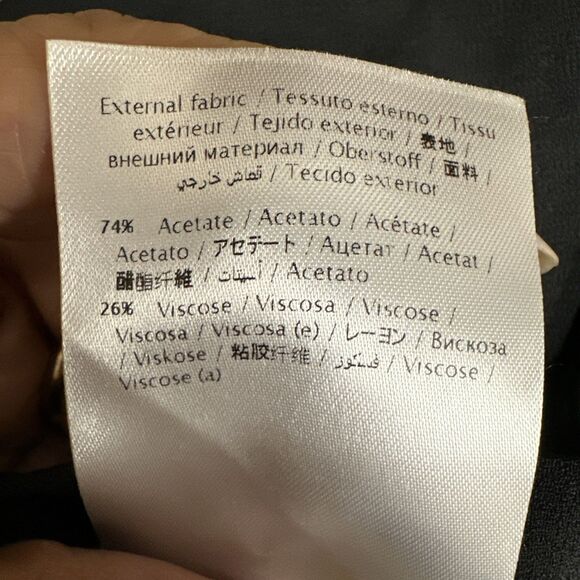 External fabric / Tessuto esterno / Tissu
extérieur / Tejido exterior / 表地 /
внешний материал / Oberstoff / 面料 /
قماش خارجي / Tecido exterior
74% Acetate / Acetato / Acétate /
Acetato / アセテート / Ацетат / Acetat /
醋酯纤维 / أسيتات / Acetato
26% Viscose / Viscosa / Viscose /
Viscosa / Viscosa (e) / レーヨン / Вискоза
/ Viskose / 粘胶纤维 / فسكوز / Viscose /
Viscose (a)